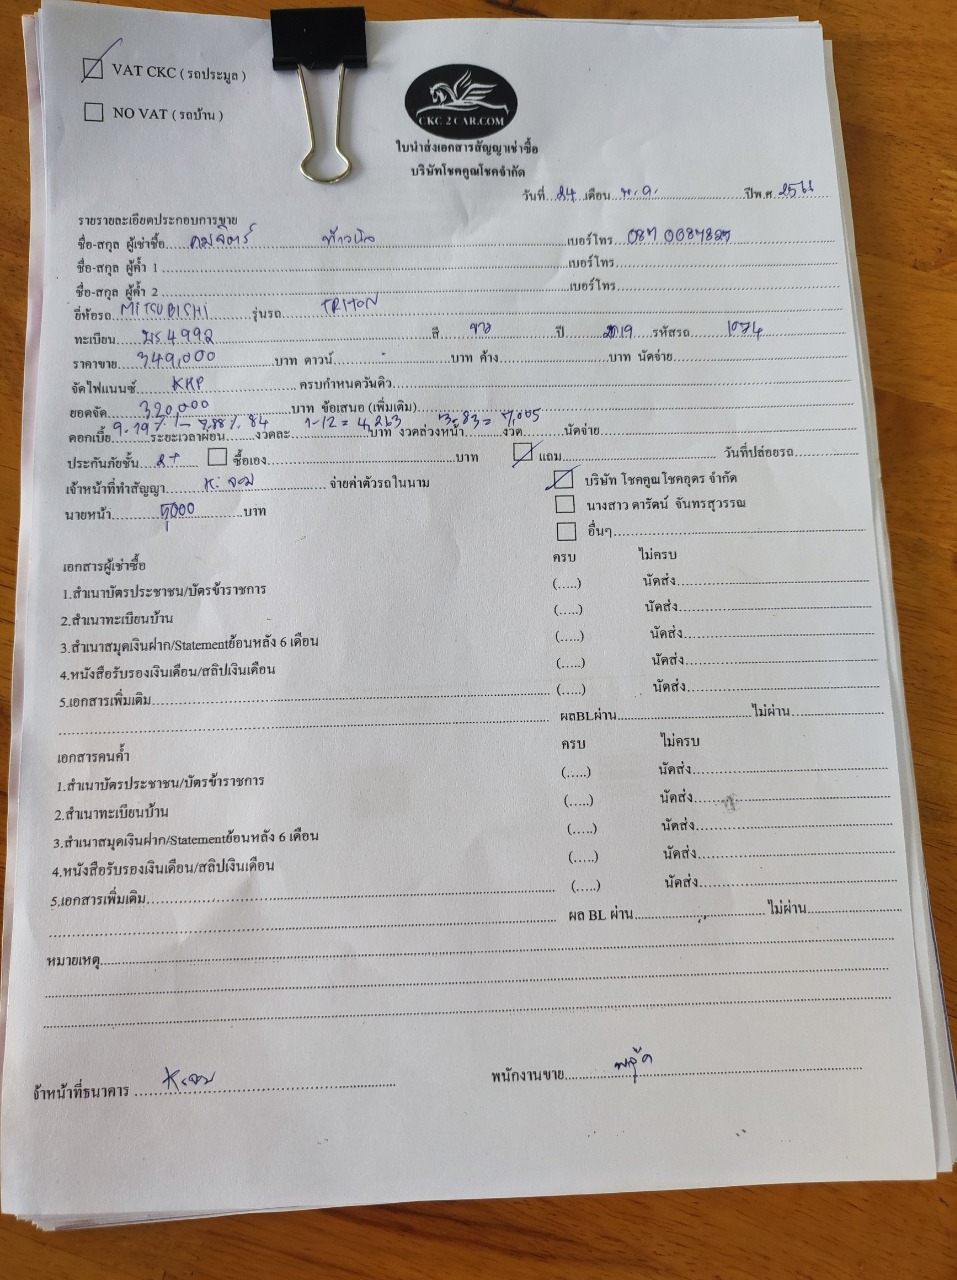 VAT CKC ( รถประมูล )
NO VAT ( รถบ้าน )
CKC 2 CAR.COM
ใบนำส่งเอกสารสัญญาเช่าซื้อ
บริษัทโชคคูณโชคจำกัด
วันที่ 24 เดือน พ.ค. ปีพ.ศ. 25
รายรายละเอียดประกอบการขาย
ชื่อ-สกุล ผู้เช่าซื้อ เบอร์โทร
ชื่อ-สกุล ผู้ค้ำ 1 เบอร์โทร
ชื่อ-สกุล ผู้ค้ำ 2 เบอร์โทร
ยี่ห้อรถ MITSUBISHI รุ่นรถ TRITON
ทะเบียน 4992 สี ขาว ปี 2019 รหัสรถ 1074
ราคาขาย 349,000 บาท ดาวน์ บาท ค้าง บาท นัดจ่าย
จัดไฟแนนซ์ KKP ครบกำหนดวันดิว
ยอดจัด 320,000 บาท ข้อเสนอ (เพิ่มเติม)
ดอกเบี้ย 9.19% ระยะเวลาผ่อน 84 งวดละ 1-12 = 4,263 บาท งวดล่วงหน้า 13-83 = 7,005 งวด นัดจ่าย
ประกันภัยชั้น 2+ ซื้อเอง บาท แถม วันที่ปล่อยรถ
เจ้าหน้าที่ทำสัญญา จ่ายค่าตัวรถในนาม บริษัท โชคคูณโชคอุดร จำกัด
นายหน้า 5000 บาท นางสาว ดารัตน์ จันทรสุวรรณ
อื่นๆ
เอกสารผู้เช่าซื้อ ครบ ไม่ครบ
1.สำเนาบัตรประชาชน/บัตรข้าราชการ (.....) นัดส่ง
2.สำเนาทะเบียนบ้าน (.....) นัดส่ง
3.สำเนาสมุดเงินฝาก/Statementย้อนหลัง 6 เดือน (.....) นัดส่ง
4.หนังสือรับรองเงินเดือน/สลิปเงินเดือน (.....) นัดส่ง
5.เอกสารเพิ่มเติม (.....) นัดส่ง
ผลBLผ่าน ไม่ผ่าน
เอกสารคนค้ำ ครบ ไม่ครบ
1.สำเนาบัตรประชาชน/บัตรข้าราชการ (.....) นัดส่ง
2.สำเนาทะเบียนบ้าน (.....) นัดส่ง
3.สำเนาสมุดเงินฝาก/Statementย้อนหลัง 6 เดือน (.....) นัดส่ง
4.หนังสือรับรองเงินเดือน/สลิปเงินเดือน (.....) นัดส่ง
5.เอกสารเพิ่มเติม (.....) นัดส่ง
ผล BL ผ่าน ไม่ผ่าน
หมายเหตุ
จ้าหน้าที่ธนาคาร พนักงานขาย